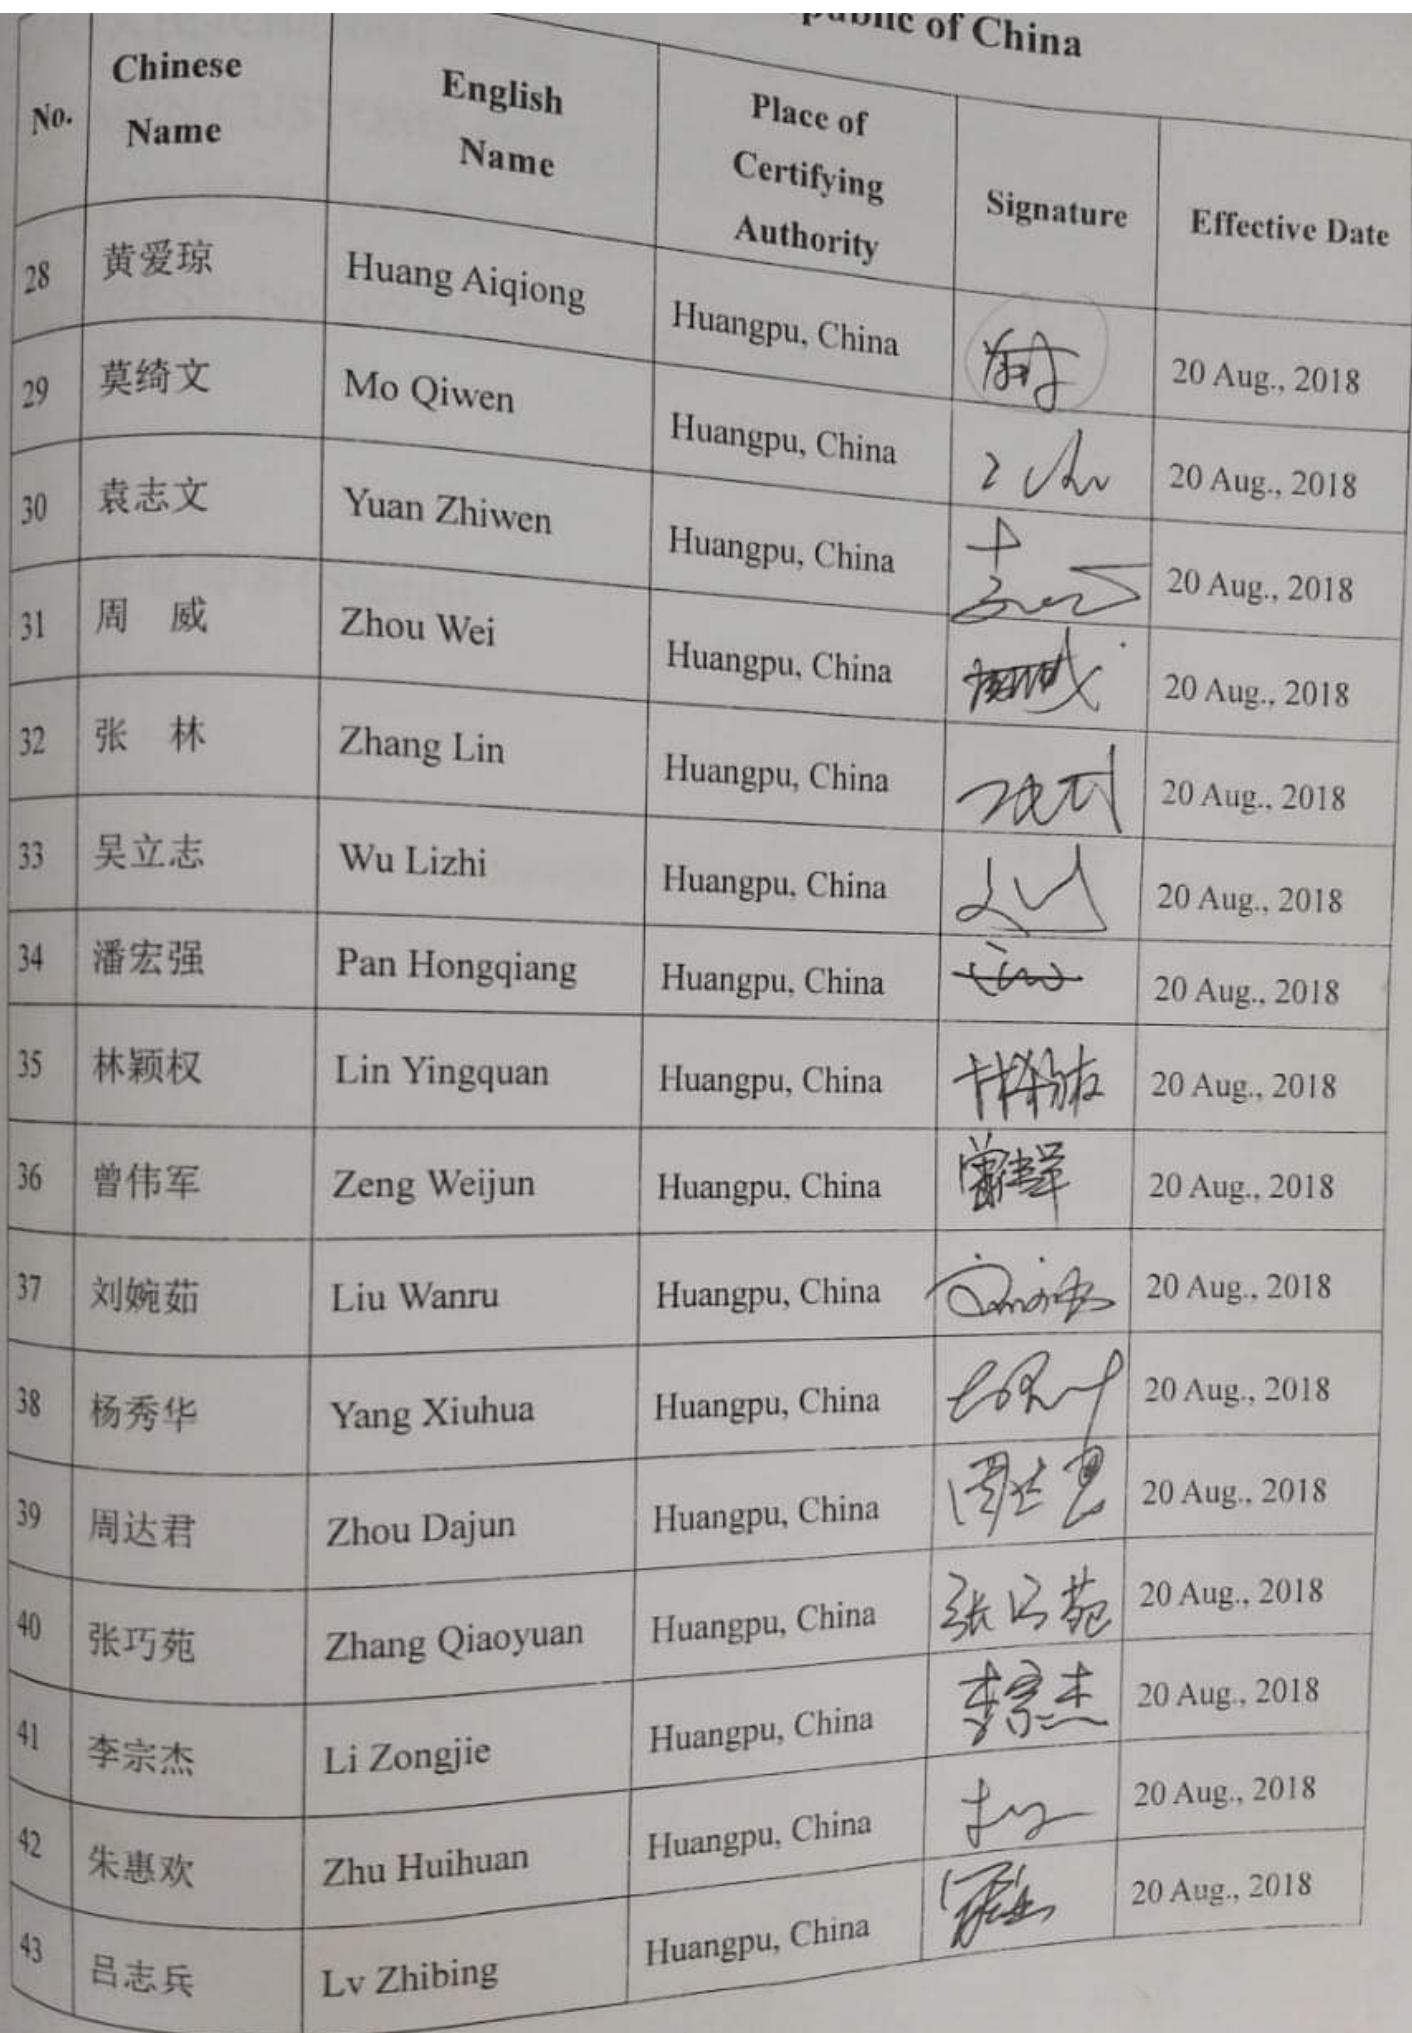 public of China
No. Chinese Name English Name Place of Certifying Authority Signature Effective Date
28 黄爱琼 Huang Aiqiong Huangpu, China 20 Aug., 2018
29 莫绮文 Mo Qiwen Huangpu, China 20 Aug., 2018
30 袁志文 Yuan Zhiwen Huangpu, China 20 Aug., 2018
31 周 威 Zhou Wei Huangpu, China 20 Aug., 2018
32 张 林 Zhang Lin Huangpu, China 20 Aug., 2018
33 吴立志 Wu Lizhi Huangpu, China 20 Aug., 2018
34 潘宏强 Pan Hongqiang Huangpu, China 20 Aug., 2018
35 林颖权 Lin Yingquan Huangpu, China 20 Aug., 2018
36 曾伟军 Zeng Weijun Huangpu, China 20 Aug., 2018
37 刘婉茹 Liu Wanru Huangpu, China 20 Aug., 2018
38 杨秀华 Yang Xiuhua Huangpu, China 20 Aug., 2018
39 周达君 Zhou Dajun Huangpu, China 20 Aug., 2018
40 张巧苑 Zhang Qiaoyuan Huangpu, China 张巧苑 20 Aug., 2018
41 李宗杰 Li Zongjie Huangpu, China 李宗杰 20 Aug., 2018
42 朱惠欢 Zhu Huihuan Huangpu, China 20 Aug., 2018
43 吕志兵 Lv Zhibing Huangpu, China 20 Aug., 2018